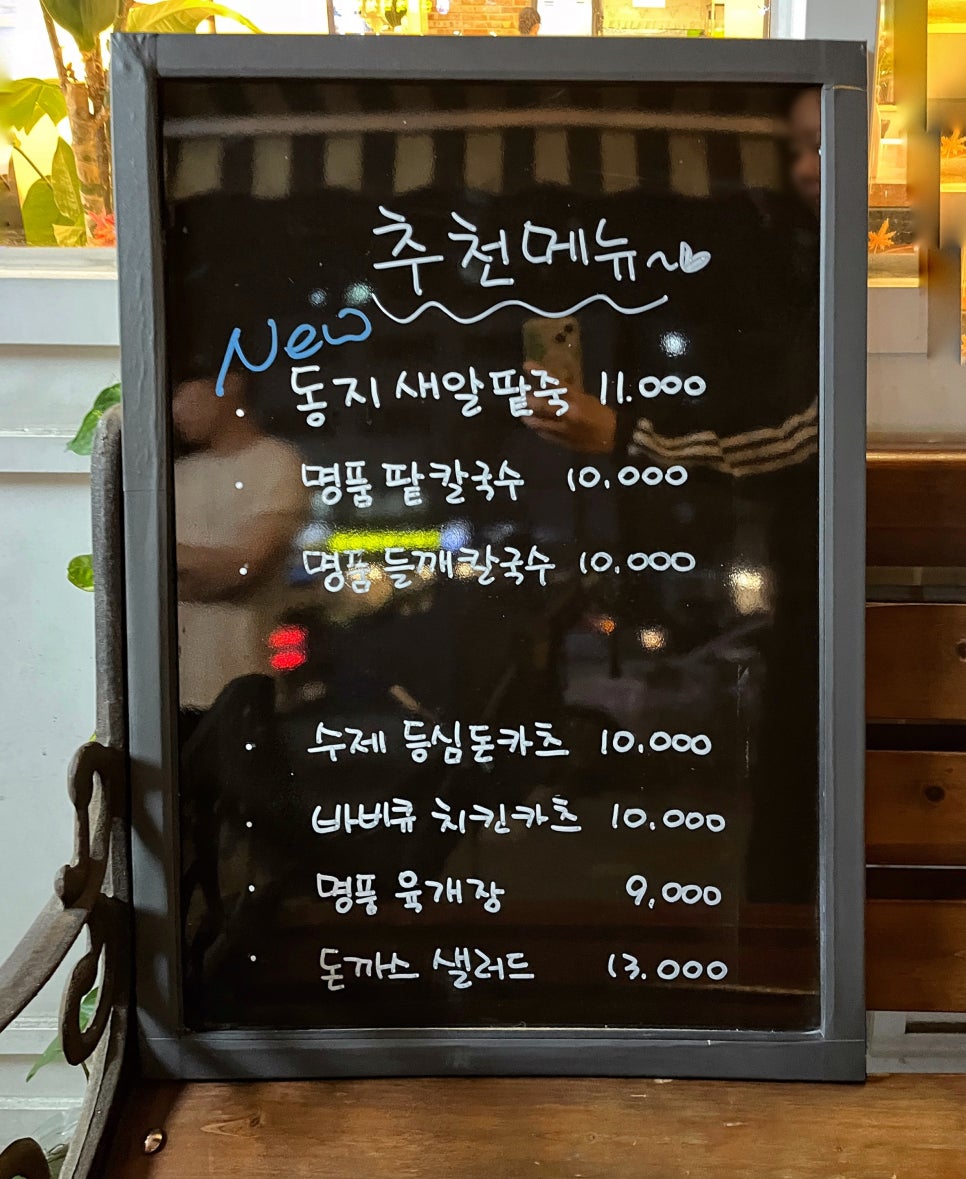 추천메뉴~
New
· 동지 새알팥죽 11.000
· 명품 팥칼국수 10.000
· 명품 들깨칼국수 10.000
· 수제 등심돈카츠 10.000
· 바비큐 치킨카츠 10.000
· 명품 육개장 9,000
· 돈까스 샐러드 13.000